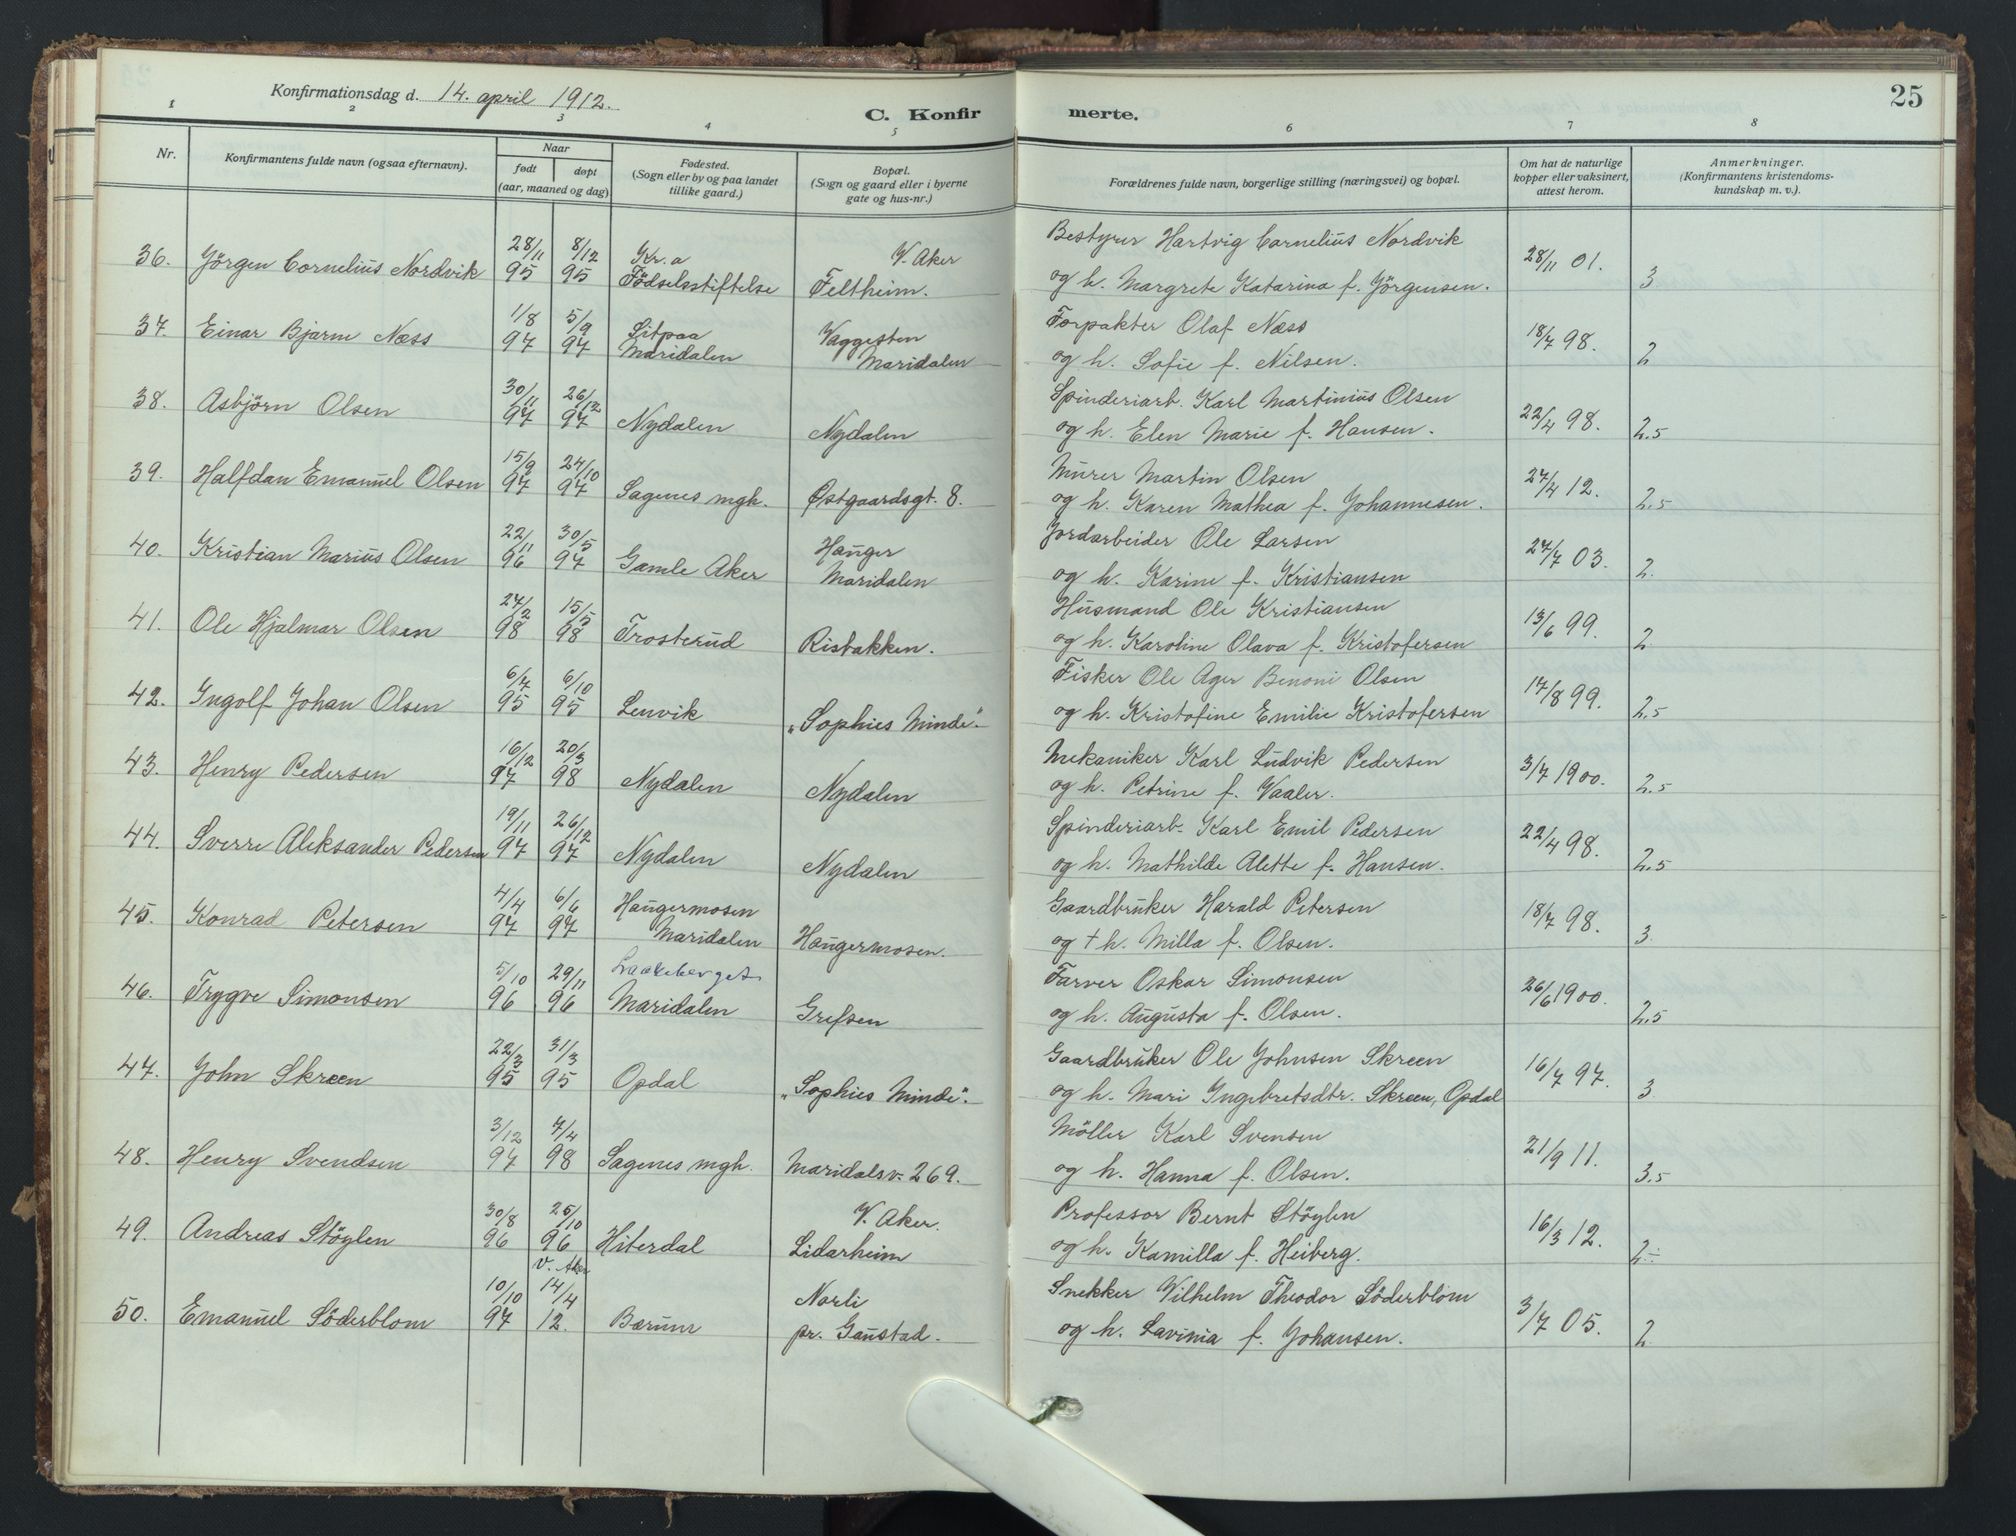 Konfirmationsdag d. 14. april 1912.
C. Konfir merte.
25
1 2 3 4 5 6 7 8
Nr.
Konfirmantens fulde navn (ogsaa efternavn).
Naar
født døpt
(aar, maaned og dag)
Fødested.
(Sogn eller by og paa landet
tillike gaard.)
Bopæl.
(Sogn og gaard eller i byerne
gate og hus-nr.)
Forældrenes fulde navn, borgerlige stilling (næringsvei) og bopæl.
Om hat de naturlige
kopper eller vaksinert,
attest herom.
Anmerkninger.
(Konfirmantens kristendoms-
kundskap m. v.).
28/11 8/12 Kr.a V. Aker Bestyrer Hartvig Cornelius Nordvik
36. Jörgen Cornelius Nordvik 95 95 Födselsstiftelse Feltheim. og h. Margrete Katarina f. Jörgensen. 28/11 01. 3
1/8 5/9 Sitpaa Vaggesten Forpakter Olaf Næss
37. Einar Bjarne Næss 97 97 Maridalen Maridalen og h. Sofie f. Nilsen. 18/7 98. 2
30/11 26/12 Spinderiarb. Karl Martinius Olsen
38. Asbjörn Olsen 97 97 Nydalen Nydalen og h. Elen Marie f. Hansen. 22/4 98. 2.5
15/9 24/10 Murer Martin Olsen
39. Halfdan Emanuel Olsen 97 97 Sagenes mgh. Østgaardsgt. 8. og h. Karen Mathea f. Johannesen. 27/4 12. 2.5
22/11 30/5 Hauger Jordarbeider Ole Larsen
40. Kristian Marius Olsen 96 97 Gamle Aker Maridalen og h. Karine f. Kristiansen 27/7 03. 2.
27/2 15/5 Husmand Ole Kristiansen
41. Ole Hjalmar Olsen 98 98 Trosterud Ristakken. og h. Karoline Olava f. Kristofersen 13/6 99. 2
6/7 6/10 Fisker Ole Ager Benoni Olsen
42. Ingolf Johan Olsen 95 95 Lenvik „Sophies Minde". og h. Kristofine Emilie Kristofersen 17/8 99. 2.5
16/12 20/3 Mekaniker Karl Ludvik Pedersen
43. Henry Pedersen 97 98 Nydalen Nydalen og h. Petrine f. Vaaler. 3/7 1900. 2.5
19/11 26/12 Spinderiarb. Karl Emil Pedersen
44. Sverre Aleksander Pedersen 97 97 Nydalen Nydalen og h. Mathilde Alette f. Hansen. 22/4 98. 2.5
4/4 6/6 Haugermosen Gaardbruker Harald Petersen
45. Konrad Petersen 97 97 Maridalen Haugermosen. og † h. Milla f. Olsen. 18/7 98. 3.
5/10 29/11 Laakeberget Farver Oskar Simonsen
46. Trygve Simonsen 96 96 Maridalen Grefsen og h. Augusta f. Olsen. 26/6 1900. 2.5
22/2 31/3 Gaardbruker Ole Johnsen Skreen
47. John Skreen 95 95 Opdal „Sophies Minde". og h. Mari Ingebretsdtr. Skreen, Opdal 16/7 97. 3.
3/12 7/4 Möller Karl Svensen
48. Henry Svendsen 97 98 Sagenes mgh. Maridalsv. 269. og h. Hanna f. Olsen. 21/9 11. 3.5
30/8 25/10 V. Aker. Professor Bernt Stöylen
49. Andreas Stöylen 96 96 Hiterdal Lidarheim og h. Kamilla f. Heiberg. 16/3 12. 2÷
V. Aker
10/10 14/4 Norli Snekker Vilhelm Theodor Söderblom
50. Emanuel Söderblom 97 12. Bærum pr. Gaustad. og h. Lavinia f. Johansen. 3/7 05. 2